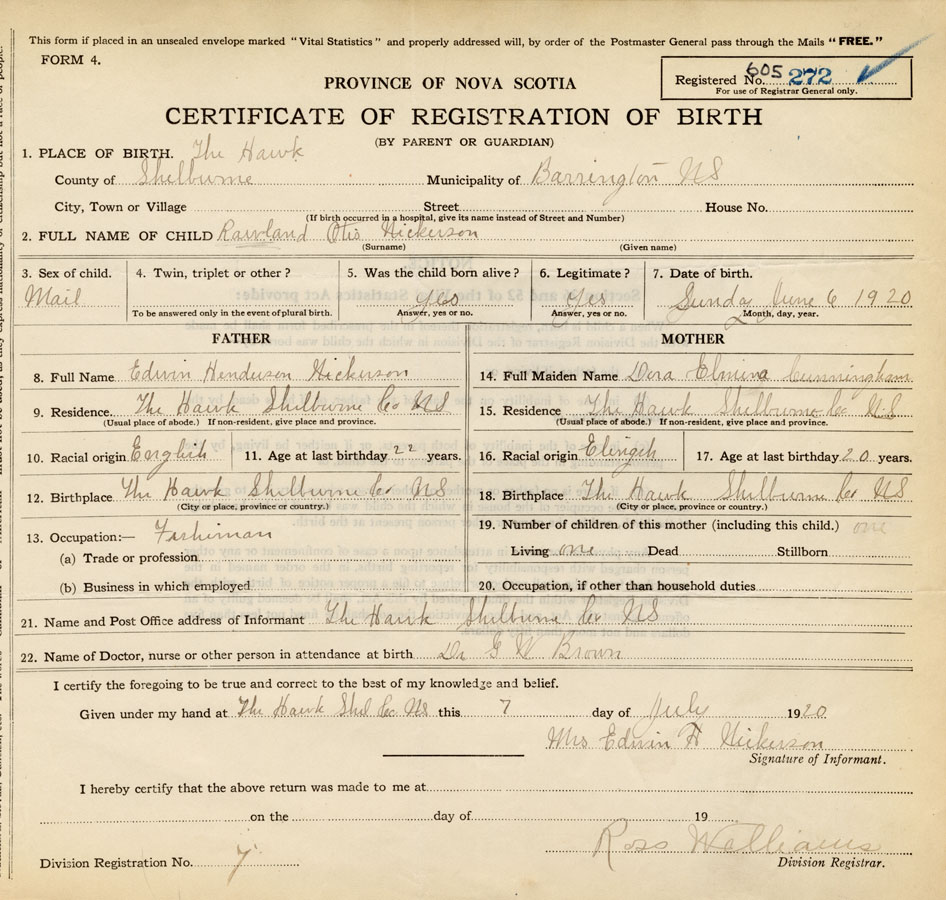 This form if placed in an unsealed envelope marked "Vital Statistics" and properly addressed will, by order of the Postmaster General pass through the Mails "FREE."
FORM 4.
Registered No. 605 272
For use of Registrar General only.
PROVINCE OF NOVA SCOTIA
CERTIFICATE OF REGISTRATION OF BIRTH
(BY PARENT OR GUARDIAN)
1. PLACE OF BIRTH. The Hawk
County of Shelburne Municipality of Barrington NS
City, Town or Village Street House No.
(If birth occurred in a hospital, give its name instead of Street and Number)
2. FULL NAME OF CHILD Rawland Otis Nickerson
(Surname) (Given name)
3. Sex of child. 4. Twin, triplet or other? 5. Was the child born alive? 6. Legitimate? 7. Date of birth.
Mail yes Yes Sunday June 6 1920
To be answered only in the event of plural birth. Answer, yes or no. Answer, yes or no. Month, day, year.
FATHER MOTHER
8. Full Name Edwin Henderson Nickerson
9. Residence. The Hawk Shelburne Co NS
(Usual place of abode.) If non-resident, give place and province.
10. Racial origin English 11. Age at last birthday 22 years.
12. Birthplace The Hawk Shelburne Co NS
(City or place, province or country.)
13. Occupation:— Fisherman
(a) Trade or profession
(b) Business in which employed
14. Full Maiden Name Dora Elmina Cunningham
15. Residence The Hawk Shelburne Co NS
(Usual place of abode.) If non-resident, give place and province.
16. Racial origin 17. Age at last birthday 20 years.
18. Birthplace The Hawk Shelburne Co NS
(City or place, province or country.)
19. Number of children of this mother (including this child.) one
Living one Dead Stillborn
20. Occupation, if other than household duties
21. Name and Post Office address of Informant The Hawk Shelburne Co NS
22. Name of Doctor, nurse or other person in attendance at birth Dr G W Brown
I certify the foregoing to be true and correct to the best of my knowledge and belief.
Given under my hand at The Hawk Shel Co NS this 7 day of July 1920
Mrs Edwin H Nickerson
Signature of Informant.
I hereby certify that the above return was made to me at
on the day of 19
Ross Williams
Division Registration No. 7 Division Registrar.